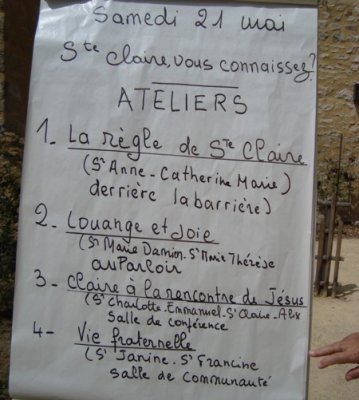 Samedi 21 mai
Ste Claire, vous connaissez?
ATELIERS
1- La règle de Ste Claire
(Sr Anne-Catherine Marie)
derrière la barrière)
2- Louange et Joie
(Sr Marie Damien. Sr Marie Thérèse
au Parloir
3- Claire à la rencontre de Jésus
(Sr Charlotte-Emmanuel-Sr Claire-Alix
salle de conférence
4- Vie fraternelle
(Sr Janine-Sr Francine
salle de communauté